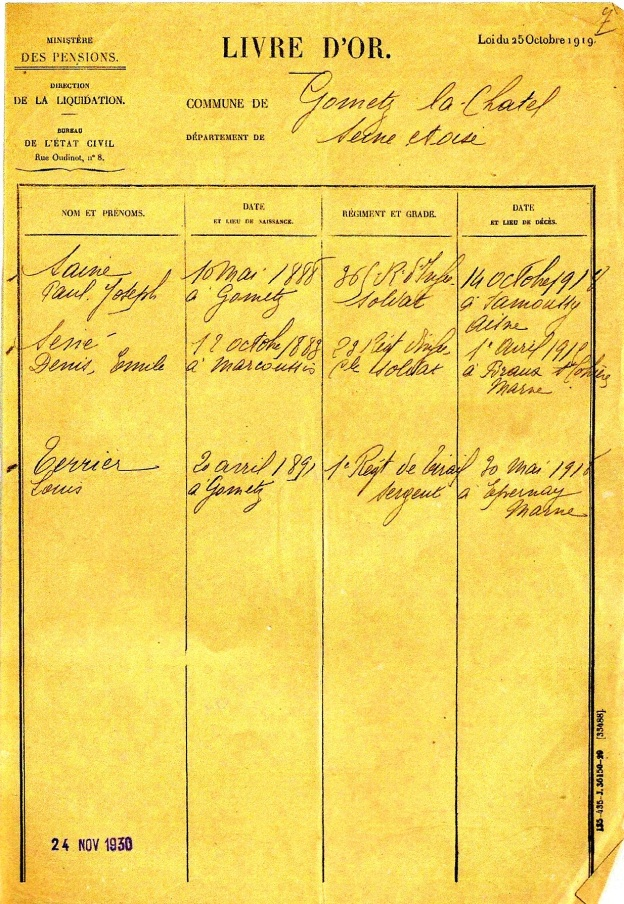 7
MINISTÈRE
DES PENSIONS.
DIRECTION
DE LA LIQUIDATION.
BUREAU
DE L'ÉTAT CIVIL
Rue Oudinot, n° 8.
LIVRE D'OR.
Loi du 25 Octobre 1919.
COMMUNE DE Gometz la-Chatel
DÉPARTEMENT DE Seine et Oise
NOM ET PRÉNOMS.
DATE
ET LIEU DE NAISSANCE.
RÉGIMENT ET GRADE.
DATE
ET LIEU DE DÉCÈS.
Saine
Paul. Joseph
10 Mai 1888
à Gometz
R. d'Infie
Soldat
14 octobre
à Samoussy
Aisne
Denis, Emile
12 octobre 1883
à Marcoussis
23 Régt d'Infie
Soldat
1er Avril
à Braux
Marne
Terrier
Louis
20 avril 1891
à Gometz
1er Régt de Tirail
Sergent
30 Mai
à Epernay
Marne
24 NOV 1930
135-435-J. 36150-29 [33488].